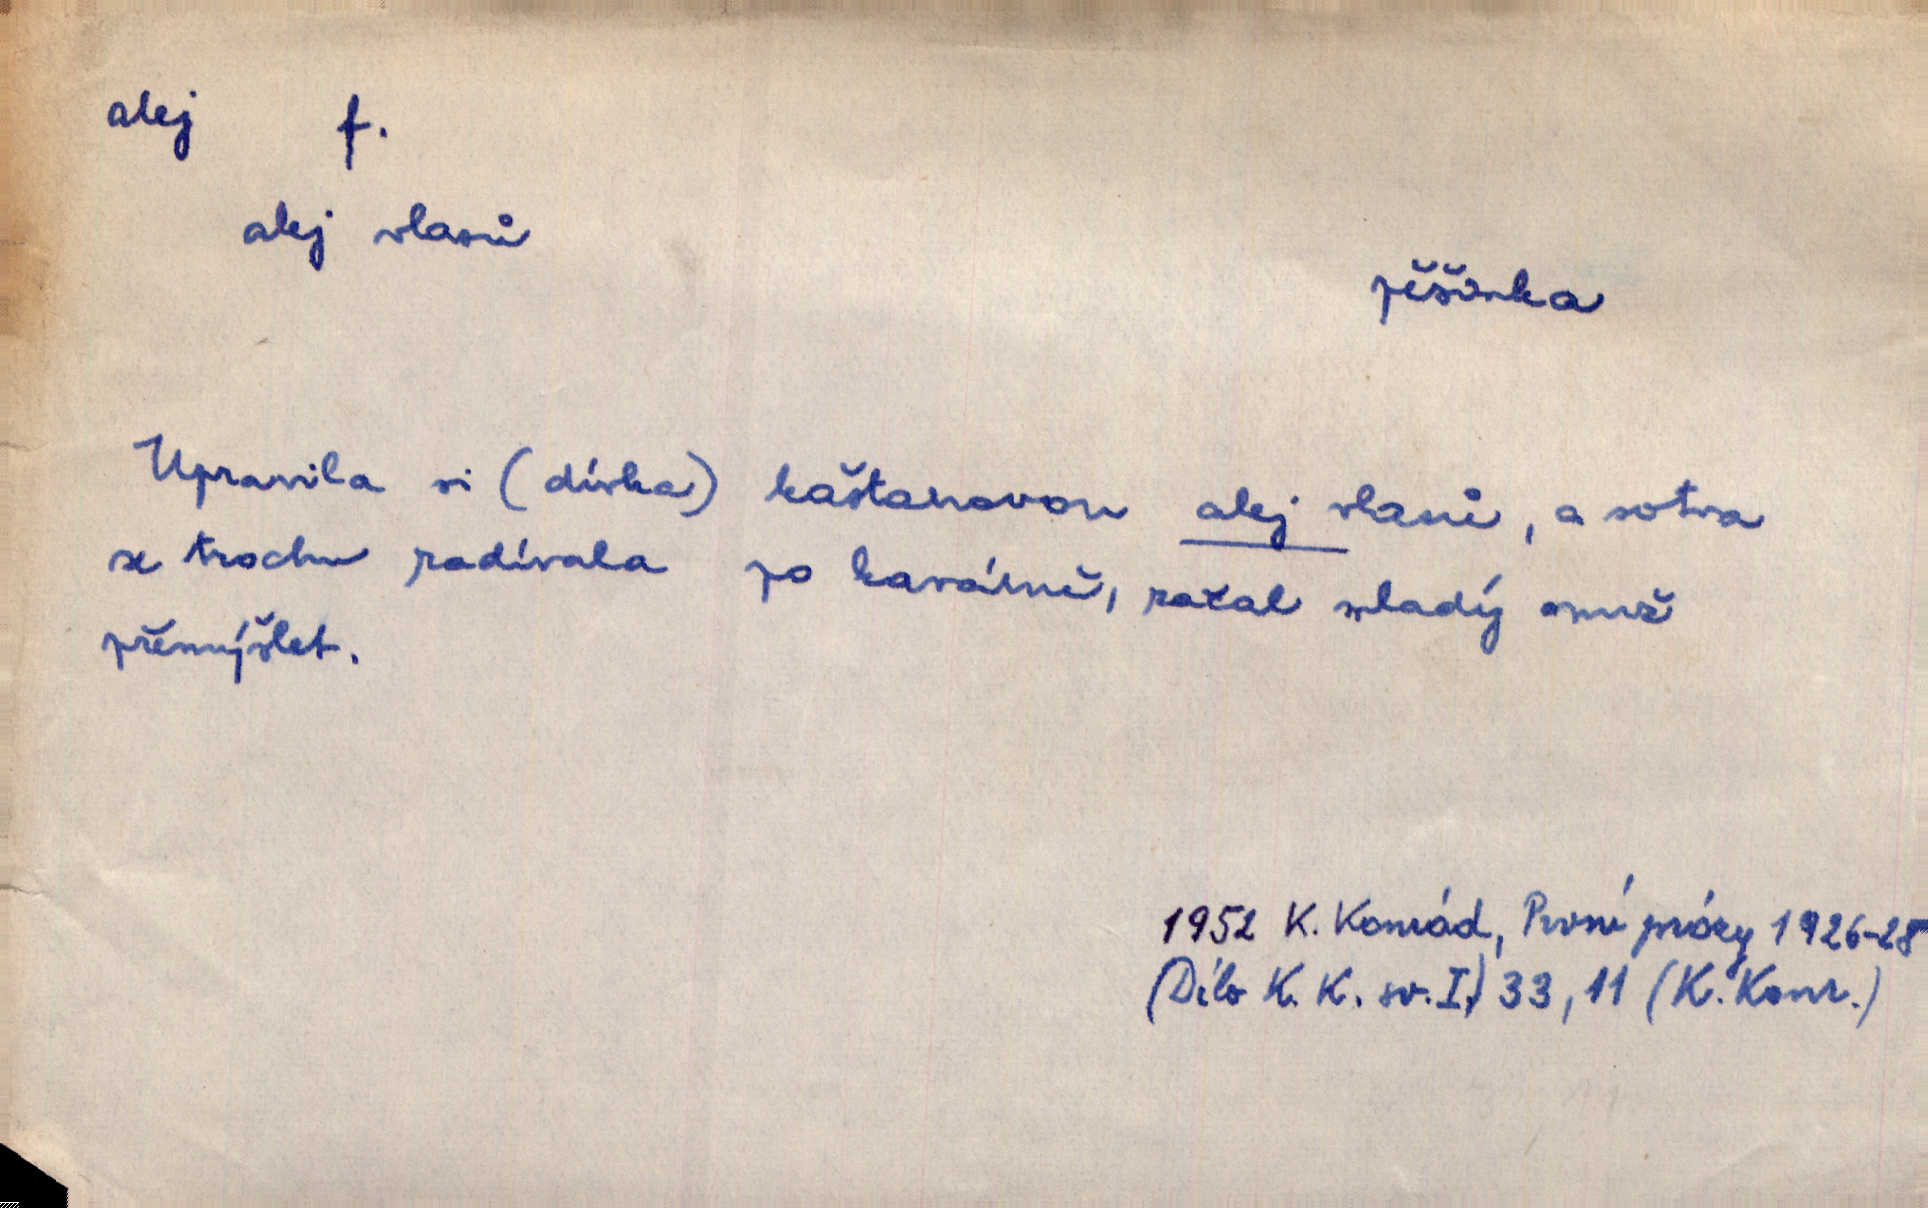 alej f.
alej vlasů
pěšinka
Upravila si (dívka) kaštanovou alej vlasů, a sotva
se trochu zadívala po kavárně, začal mladý muž
přemýšlet.
1952 K. Konrád, První prózy 1926-28
(Dílo K. K. sv. I) 33, 11 (K. Konr.)